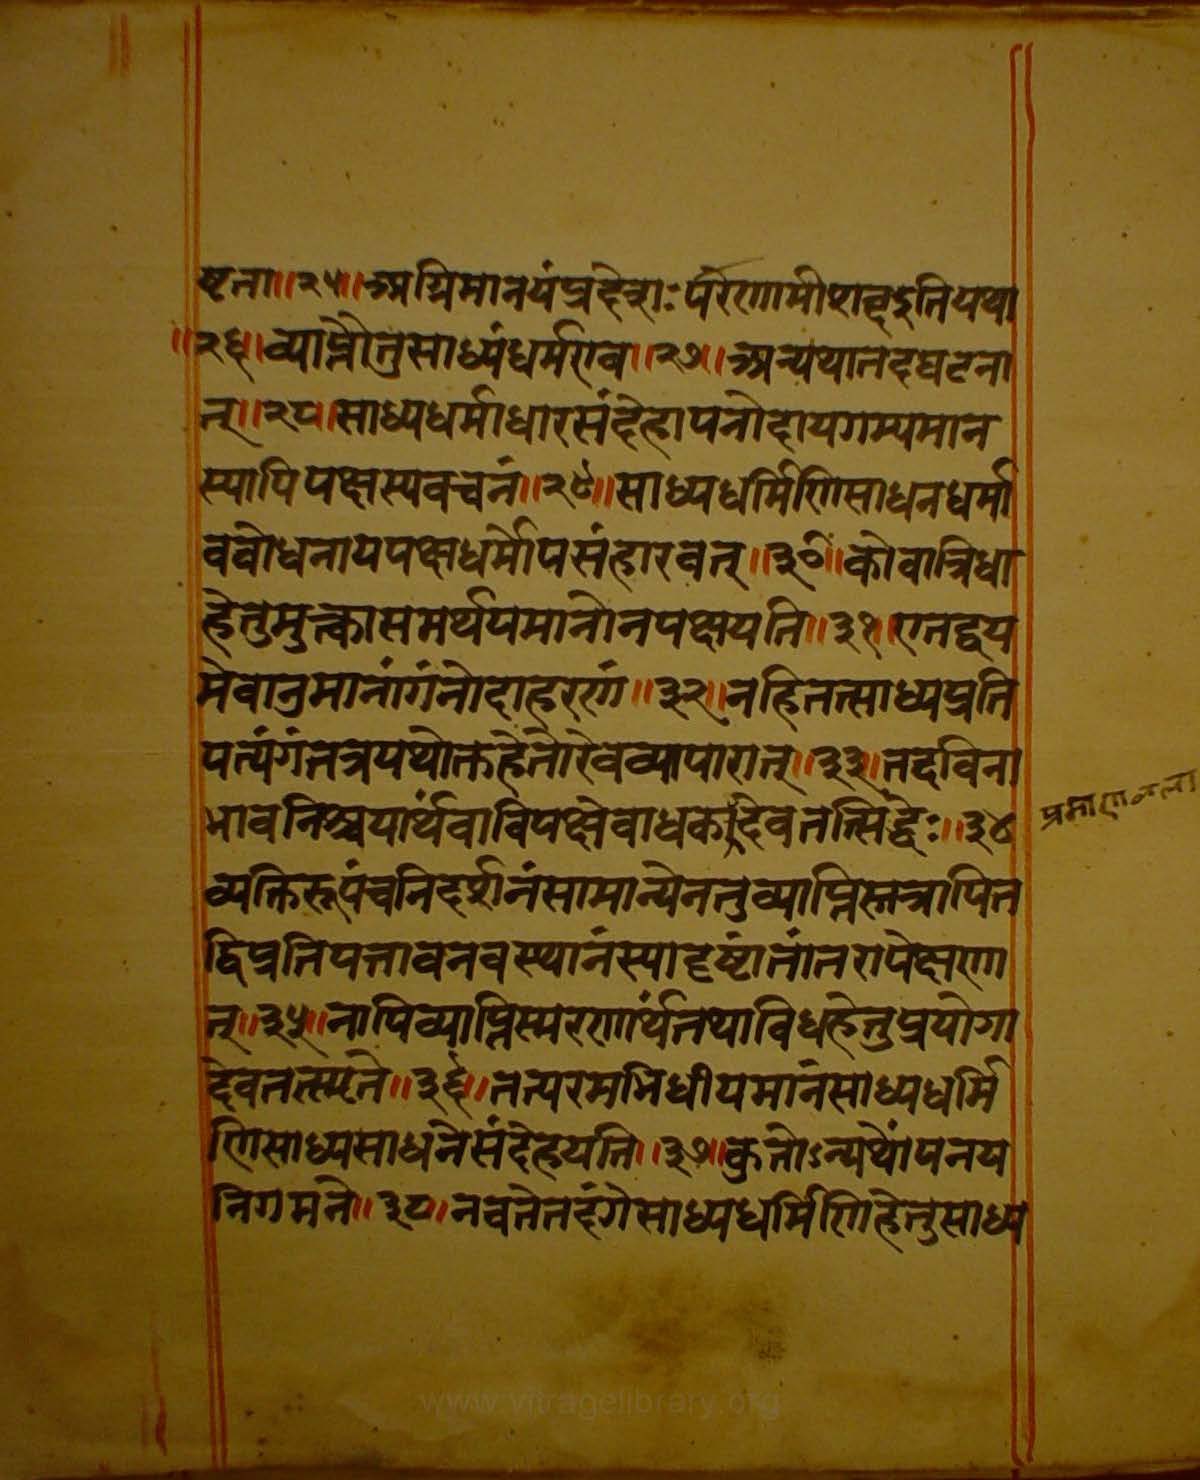 ष्टता॥२५॥अग्निमानयंप्रदेशः परिणामीशब्दइतियथा
॥२६॥व्याप्तौतुसाध्यंधर्मएव॥२७॥अन्यथातदघटना
त्॥२८॥साध्यधर्माधारसंदेहापनोदायगम्यमान
स्यापिपक्षस्यवचनं॥२९॥साध्यधर्मिणिसाधनधर्मा
वबोधनायपक्षधर्मोपसंहारवत्॥३०॥कोवात्रिधा
हेतुमुक्त्वासमर्थयमानोनपक्षयति॥३१॥एतद्वय
मेवानुमानांगंनोदाहरणं॥३२॥नहितत्साध्यप्रति
पत्यंगंतत्रयथोक्तहेतोरेवव्यापारात्॥३३॥तदविना
भावनिश्चयार्थंवाविपक्षेबाधकादेवतत्सिद्धेः॥३४
व्यक्तिरूपंचनिदर्शनंसामान्येनतुव्याप्तिस्तत्रापित
द्विप्रतिपत्तावनवस्थानंस्यादृष्टांतांतरापेक्षणा
त्॥३५॥नापिव्याप्तिस्मरणार्थंतथाविधहेतुप्रयोगा
देवतत्स्मृते॥३६॥तत्परमभिधीयमानंसाध्यधर्मि
णिसाध्यसाधनेसंदेहयति॥३७॥कुतोऽन्यथोपनय
निगमने॥३८॥नचतेतदंगेसाध्यधर्मिणिहेतुसाध्य
www.vitragelibrary.org